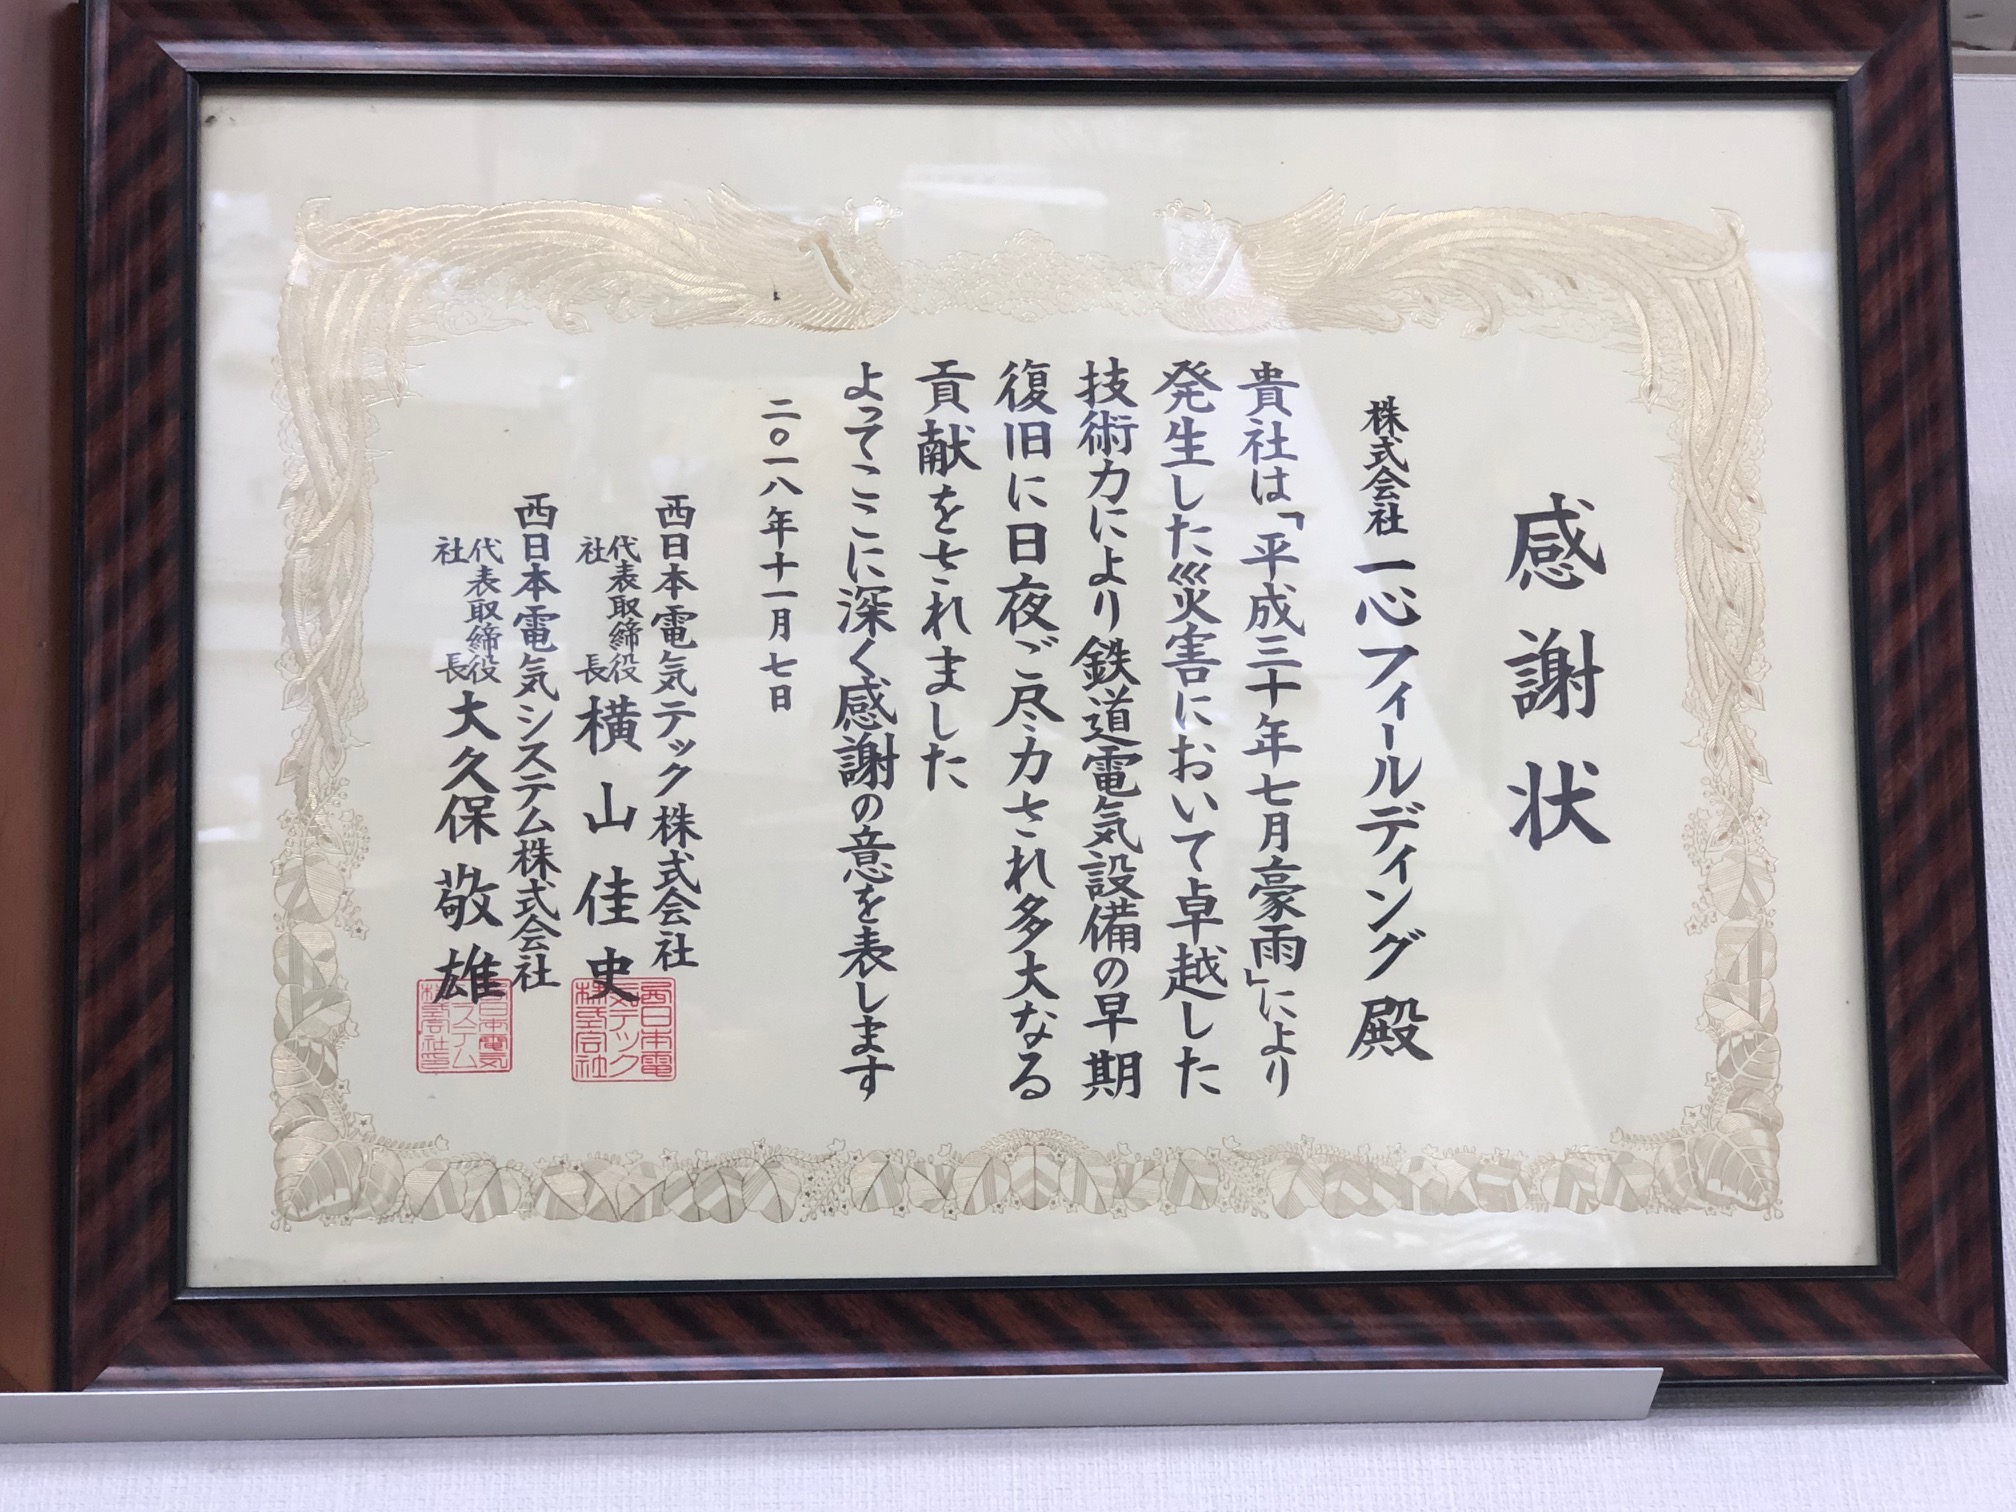 感謝状
株式会社 一心フィールディング 殿
貴社は「平成三十年七月豪雨」により
発生した災害において卓越した
技術力により鉄道電気設備の早期
復旧に日夜ご尽力され多大なる
貢献をされました
よってここに深く感謝の意を表します
二〇一八年十一月七日
西日本電気テック株式会社
代表取締役社長 横山佳史
西日本電気システム株式会社
代表取締役社長 大久保敬雄
西日本電
気テック
株式会社
西日本電気
システム
株式会社印